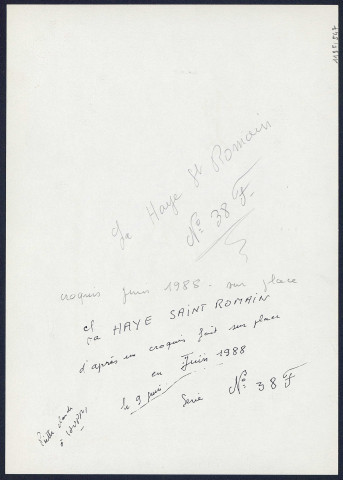 La Haye St Romain
N° 38 F.
croquis juin 1988 - sur place
La HAYE SAINT ROMAIN
d'après un croquis fait sur place
en Juin 1988
le 9 juin
Serie N° 38 F